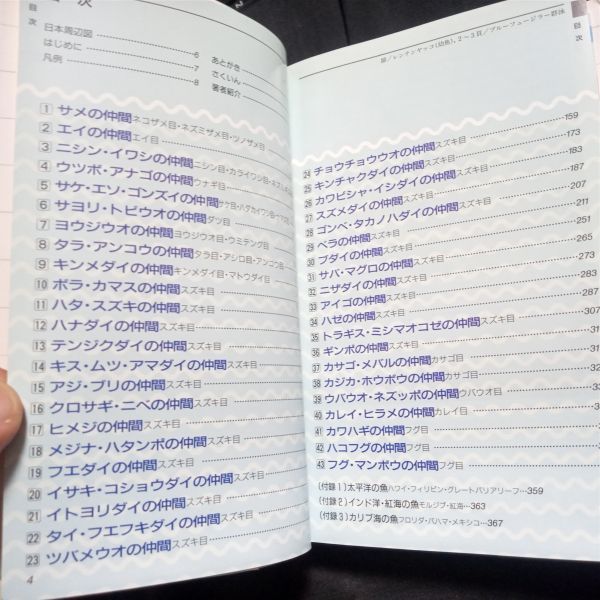 目次
目次
日本周辺図 6
はじめに 7
凡例 8
あとがき
さくいん
著者紹介
1 サメの仲間 ネコザメ目・ネズミザメ目・ツノザメ目
2 エイの仲間 エイ目
3 ニシン・イワシの仲間 ニシン目・カライワシ目・ネズミギス
4 ウツボ・アナゴの仲間 ウナギ目
5 サケ・エソ・ゴンズイの仲間 サケ目・ハダカイワシ目・ナマズ
6 サヨリ・トビウオの仲間 ダツ目
7 ヨウジウオの仲間 ヨウジウオ目・ウミテング目
8 タラ・アンコウの仲間 タラ目・アシロ目・アンコウ目
9 キンメダイの仲間 キンメダイ目・マトウダイ目
10 ボラ・カマスの仲間 スズキ目
11 ハタ・スズキの仲間 スズキ目
12 ハナダイの仲間 スズキ目
13 テンジクダイの仲間 スズキ目
14 キス・ムツ・アマダイの仲間 スズキ目
15 アジ・ブリの仲間 スズキ目
16 クロサギ・ニベの仲間 スズキ目
17 ヒメジの仲間 スズキ目
18 メジナ・ハタンポの仲間 スズキ目
19 フエダイの仲間 スズキ目
20 イサキ・コショウダイの仲間 スズキ目
21 イトヨリダイの仲間 スズキ目
22 タイ・フエフキダイの仲間 スズキ目
23 ツバメウオの仲間 スズキ目
4
扉/レンテンヤッコ(幼魚)、2〜3頁/ブルーフュージラー群泳
目次
24 チョウチョウウオの仲間 スズキ目 159
25 キンチャクダイの仲間 スズキ目 173
26 カワビシャ・イシダイの仲間 スズキ目 183
27 スズメダイの仲間 スズキ目 187
28 ゴンベ・タカノハダイの仲間 スズキ目 207
29 ベラの仲間 スズキ目 211
30 ブダイの仲間 スズキ目 251
31 サバ・マグロの仲間 スズキ目 265
32 ニザダイの仲間 スズキ目 273
33 アイゴの仲間 スズキ目 283
34 ハゼの仲間 スズキ目 287
35 トラギス・ミシマオコゼの仲間 スズキ目 307
36 ギンポの仲間 スズキ目 31
37 カサゴ・メバルの仲間 カサゴ目 32
38 カジカ・ホウボウの仲間 カサゴ目 33
39 ウバウオ・ネズッポの仲間 ウバウオ目
40 カレイ・ヒラメの仲間 カレイ目
41 カワハギの仲間 フグ目
42 ハコフグの仲間 フグ目
43 フグ・マンボウの仲間 フグ目
(付録1)太平洋の魚 ハワイ・フィリピン・グレートバリアリーフ 359
(付録2)インド洋・紅海の魚 モルジブ・紅海 363
(付録3)カリブ海の魚 フロリダ・バハマ・メキシコ 367